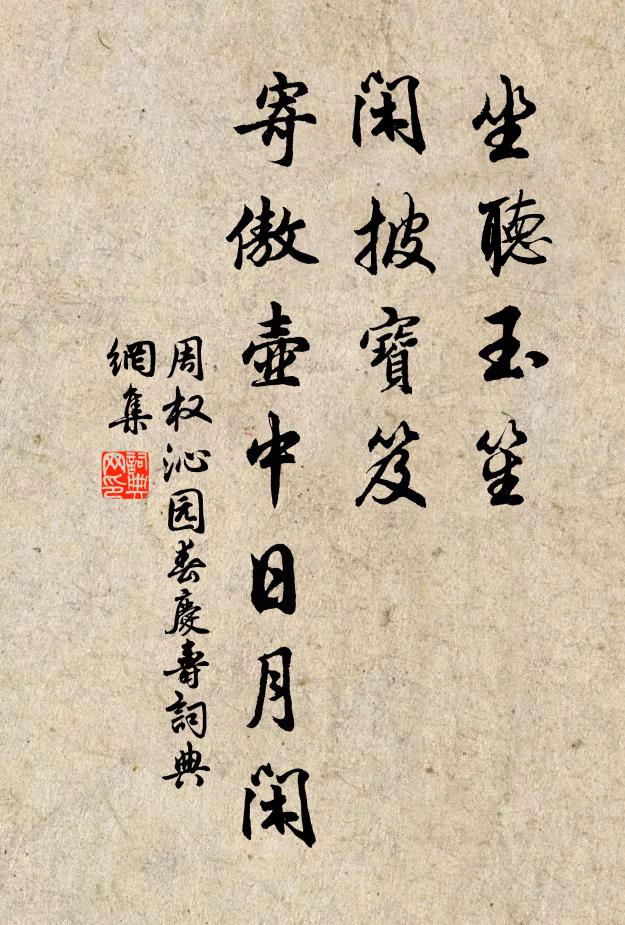 坐聽玉笙
閑披寶笈
寄傲壺中日月閑
周权沁园春慶壽詞典
網集
詞典
网印